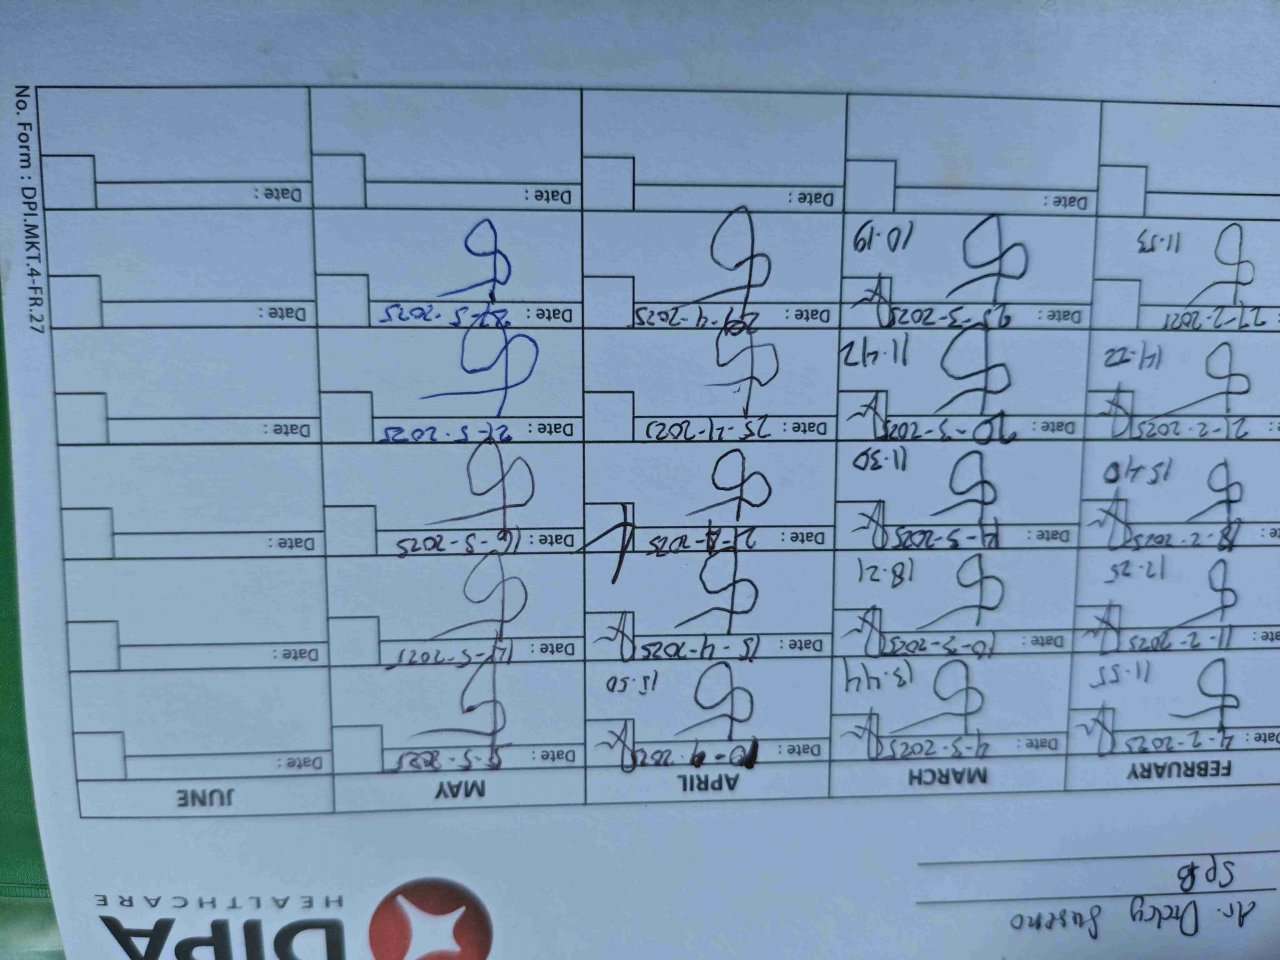 DIPA
HEALTHCARE
dr. Suseno
SpB
FEBRUARY MARCH APRIL MAY JUNE
4-2-2025 Date : 4-3-2025 Date : 10-4-2025 Date : 5-5-2025 Date :
11.55 13.44 15.50
11-2-2025 Date : 10-3-2025 Date : 15-4-2025 Date : 14-5-2025 Date :
12.25 18.21
18-2-2025 Date : 14-3-2025 Date : 21-4-2025 Date : 16-5-2025 Date :
15.40 11.30
21-2-2025 Date : 20-3-2025 Date : 25-4-2025 Date : 21-5-2025 Date :
14.22 11.42
27-2-2025 Date : 25-3-2025 Date : 29-4-2025 Date : 27-5-2025 Date :
11.53 10.19
Date : Date : Date : Date :
No. Form : DPI.MKT.4-FR.27